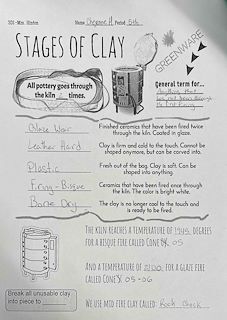 101-Mrs. Hinton
Name Period 5th
STAGES OF CLAY
GREENWARE
All pottery goes through
the kiln times.
General term for...
Anything that
has not been through
Finished ceramics that have been fired twice
through the kiln. Coated in glaze.
Leather Hard
Clay is firm and cold to the touch. Cannot be
shaped anymore, but can be carved into.
Plastic
Fresh out of the bag. Clay is soft. Can be
shaped into anything.
Firing-Bisque
Ceramics that have been fired once through
the kiln. The color is bright white.
Bone Dry
The clay is no longer cold to the touch and
is ready to be fired.
THE KILN REACHES A TEMPERATURE OF 1945 DEGREES
FOR A BISQUE FIRE CALLED CONE 05
AND A TEMPERATURE OF FOR A GLAZE FIRE
CALLED CONE 05-06
Break all unusable clay
into piece to
WE USE MID FIRE CLAY CALLED Rock